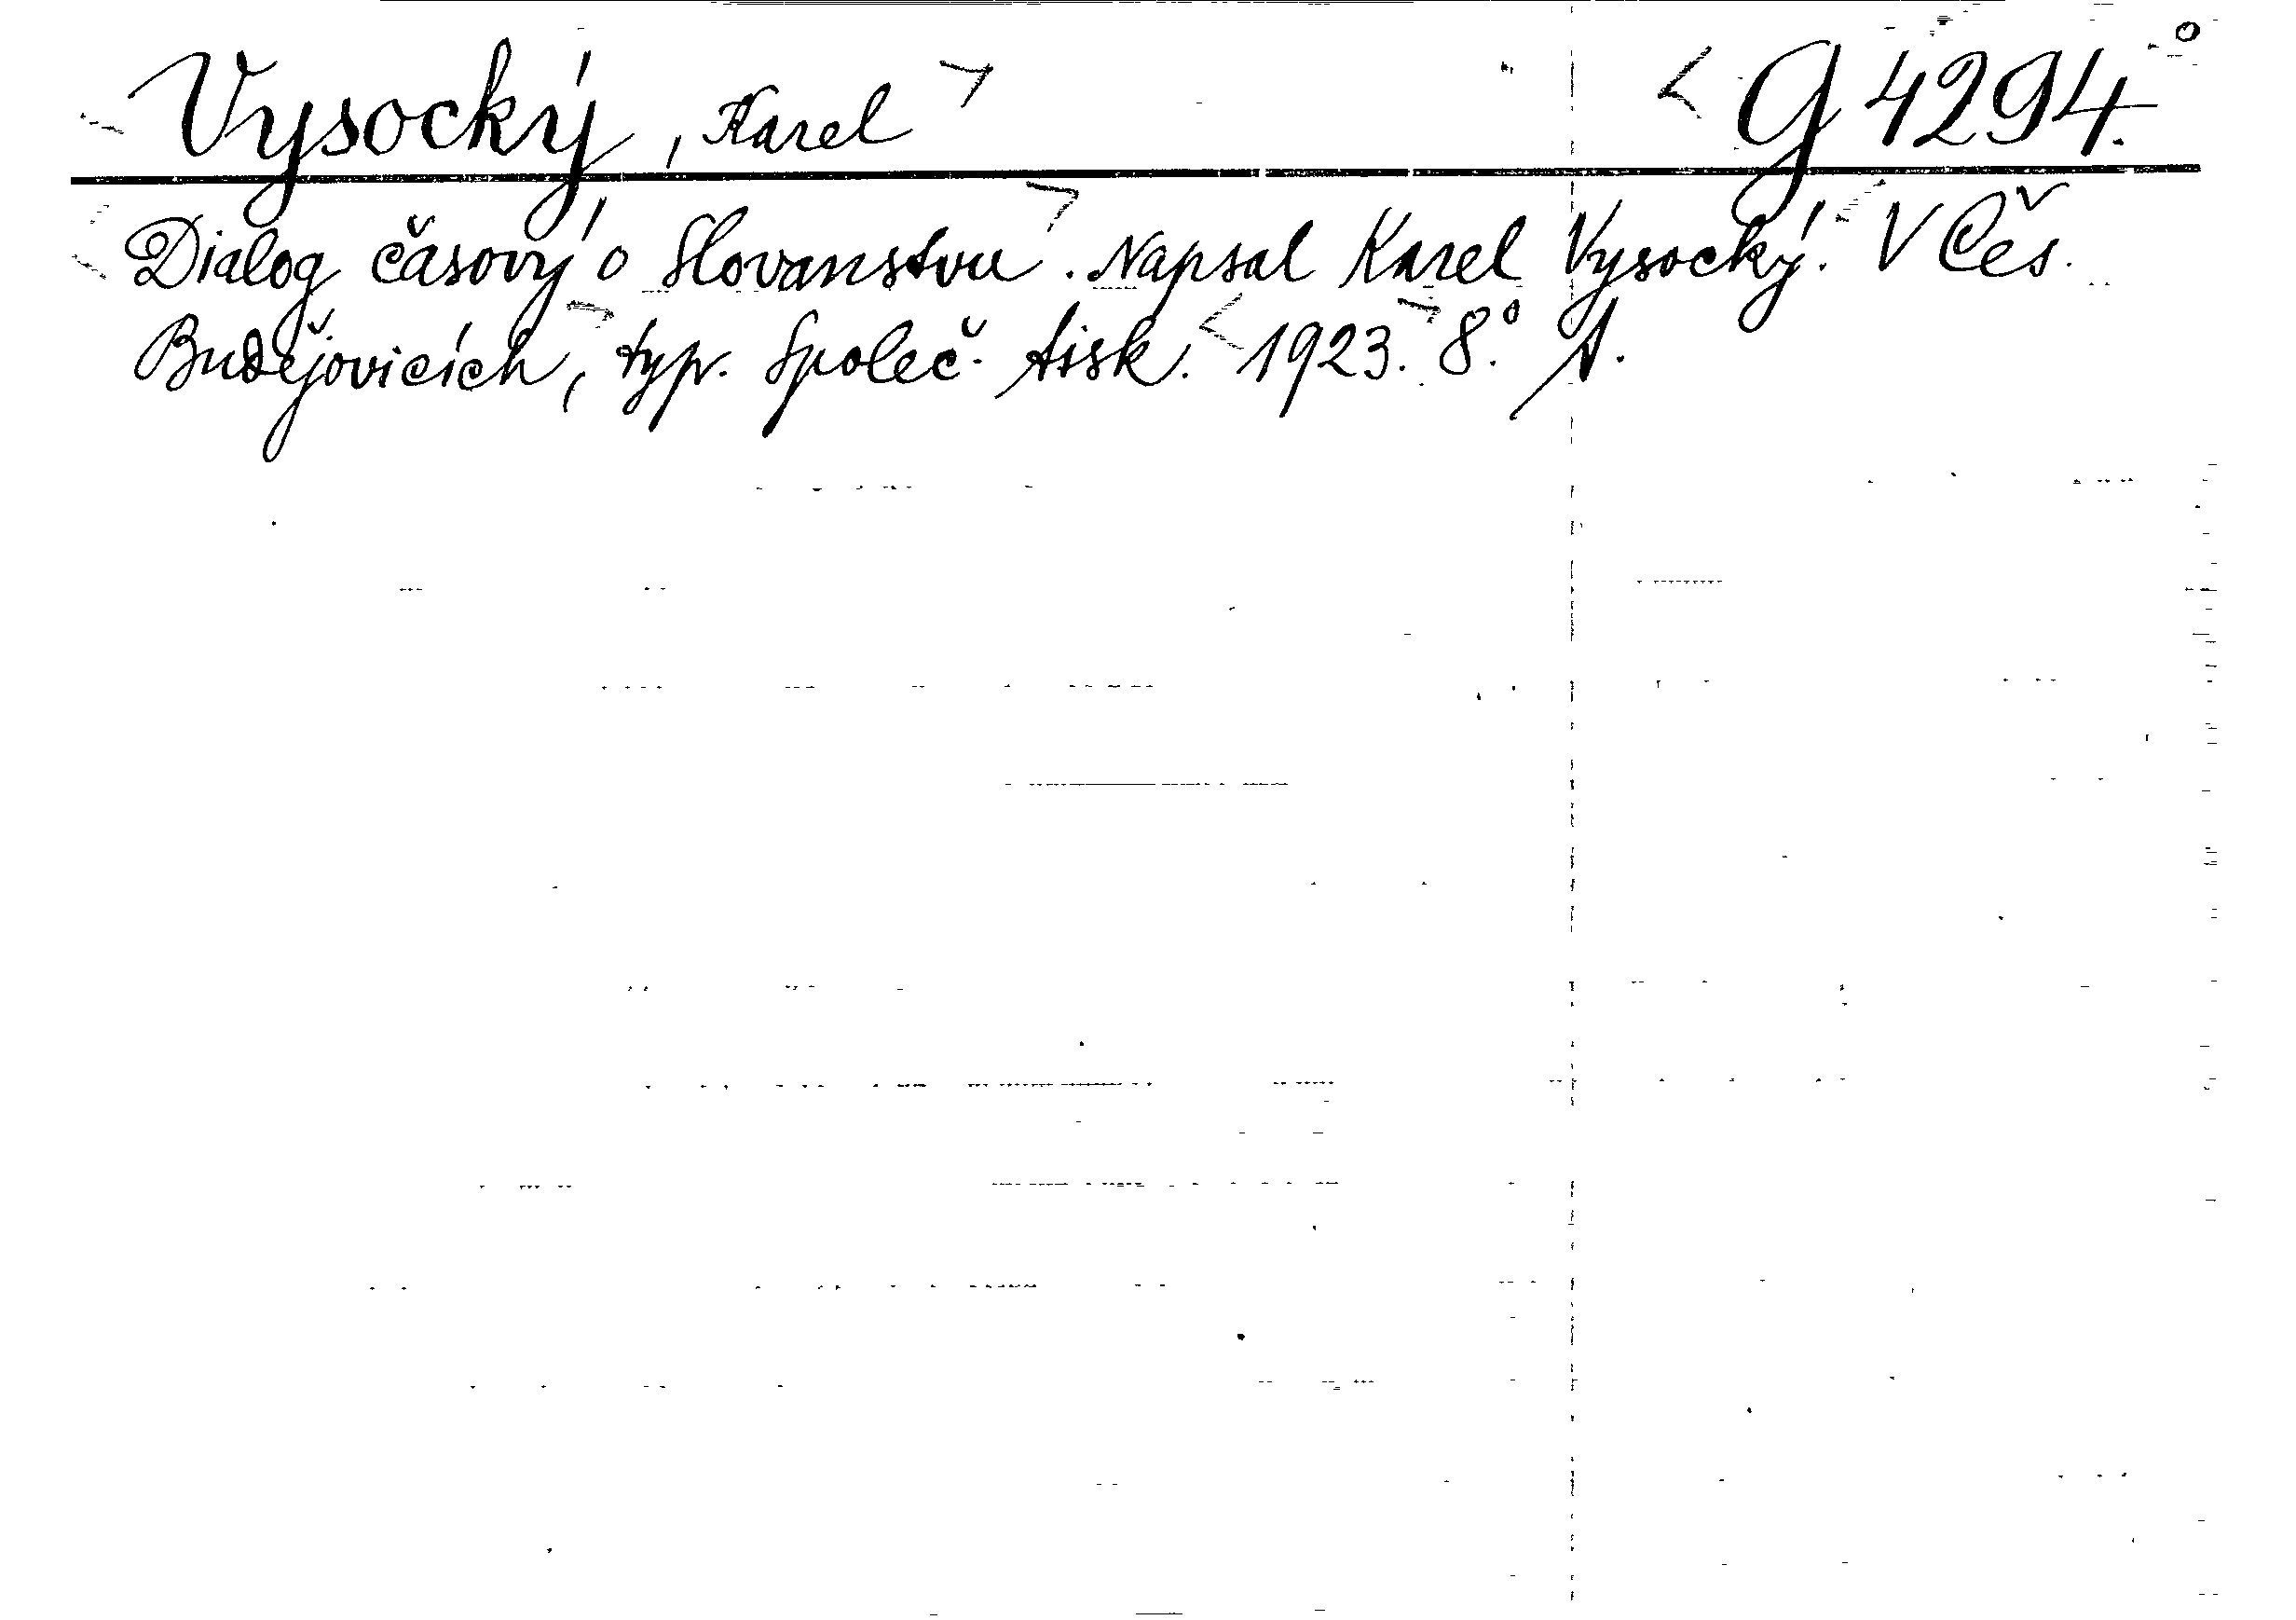 Vysocký, Karel G 4294.
Dialog časový o Slovanstvu. Napsal Karel Vysocký. V Čes.
Budějovicích, typ. Společ. tisk. 1923. 8.°